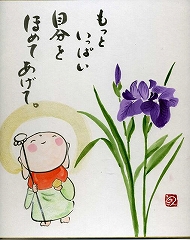 もっと
いっぱい
自分を
ほめてあげて。